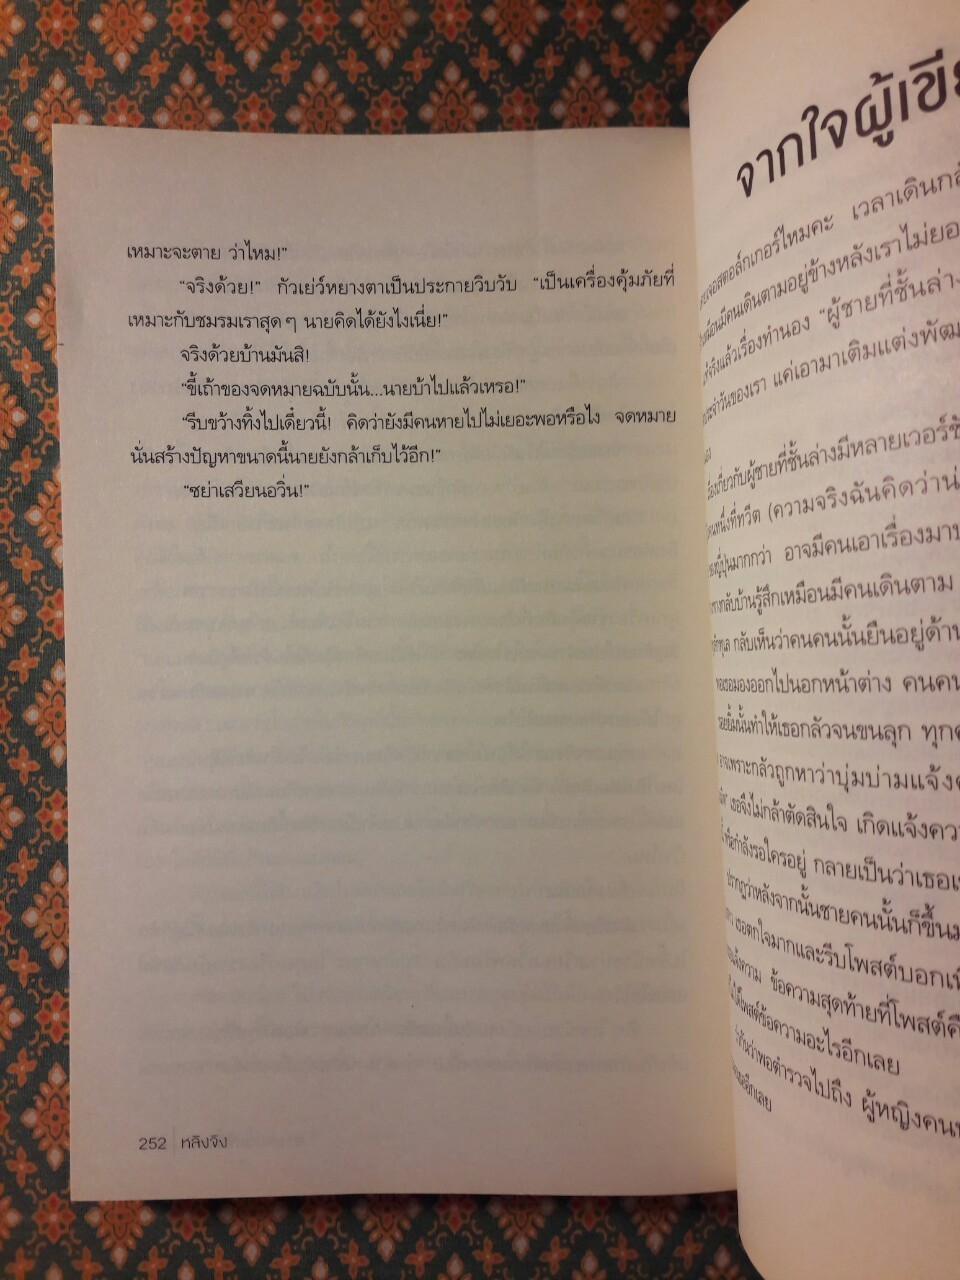 เหมาะจะตาย ว่าไหม!”
“จริงด้วย!” กัวเย่ว์หยางตาเป็นประกายวิบวับ “เป็นเครื่องคุ้มภัยที่
เหมาะกับชมรมเราสุดๆ นายคิดได้ยังไงเนี่ย!”
จริงด้วยบ้านมันสิ!
“ขี้เถ้าของจดหมายฉบับนั้น...นายบ้าไปแล้วเหรอ!”
“รีบขว้างทิ้งไปเดี๋ยวนี้! คิดว่ายังมีคนหายไปไม่เยอะพอหรือไง จดหมาย
นั่นสร้างปัญหาขนาดนี้นายยังกล้าเก็บไว้อีก!”
“ซย่าเสวียนอวิ่น!”
252 หลิงจิ่ง
จากใจผู้เขี
เจอสตอล์กเกอร์ไหมคะ เวลาเดินกลั
มีคนเดินตามอยู่ข้างหลังเราไม่ยอ
จริงแล้วเรื่องทำนอง “ผู้ชายที่ชั้นล่าง
ของเรา แค่เอามาเติมแต่งพัฒ
เกี่ยวกับผู้ชายที่ชั้นล่างมีหลายเวอร์ชั
หนึ่งที่ทวีต (ความจริงฉันคิดว่าน่
ญี่ปุ่นมากกว่า อาจมีคนเอาเรื่องมาบ
กลับบ้านรู้สึกเหมือนมีคนเดินตาม
กลับเห็นว่าคนคนนั้นยืนอยู่ด้าน
เธอมองออกไปนอกหน้าต่าง คนคน
รอยยิ้มนั้นทำให้เธอกลัวจนขนลุก ทุก
อาจเพราะกลัวถูกหาว่าบุ่มบ่ามแจ้ง
เธอจึงไม่กล้าตัดสินใจ เกิดแจ้งควา
หรือกำลังรอใครอยู่ กลายเป็นว่าเธอ
ปรากฏว่าหลังจากนั้นชายคนนั้นก็ขึ้นม
เธอตกใจมากและรีบโพสต์บอกเพื่
แจ้งความ ข้อความสุดท้ายที่โพสต์คื
ได้โพสต์ข้อความอะไรอีกเลย
กันว่าพอตำรวจไปถึง ผู้หญิงคน
อีกเลย